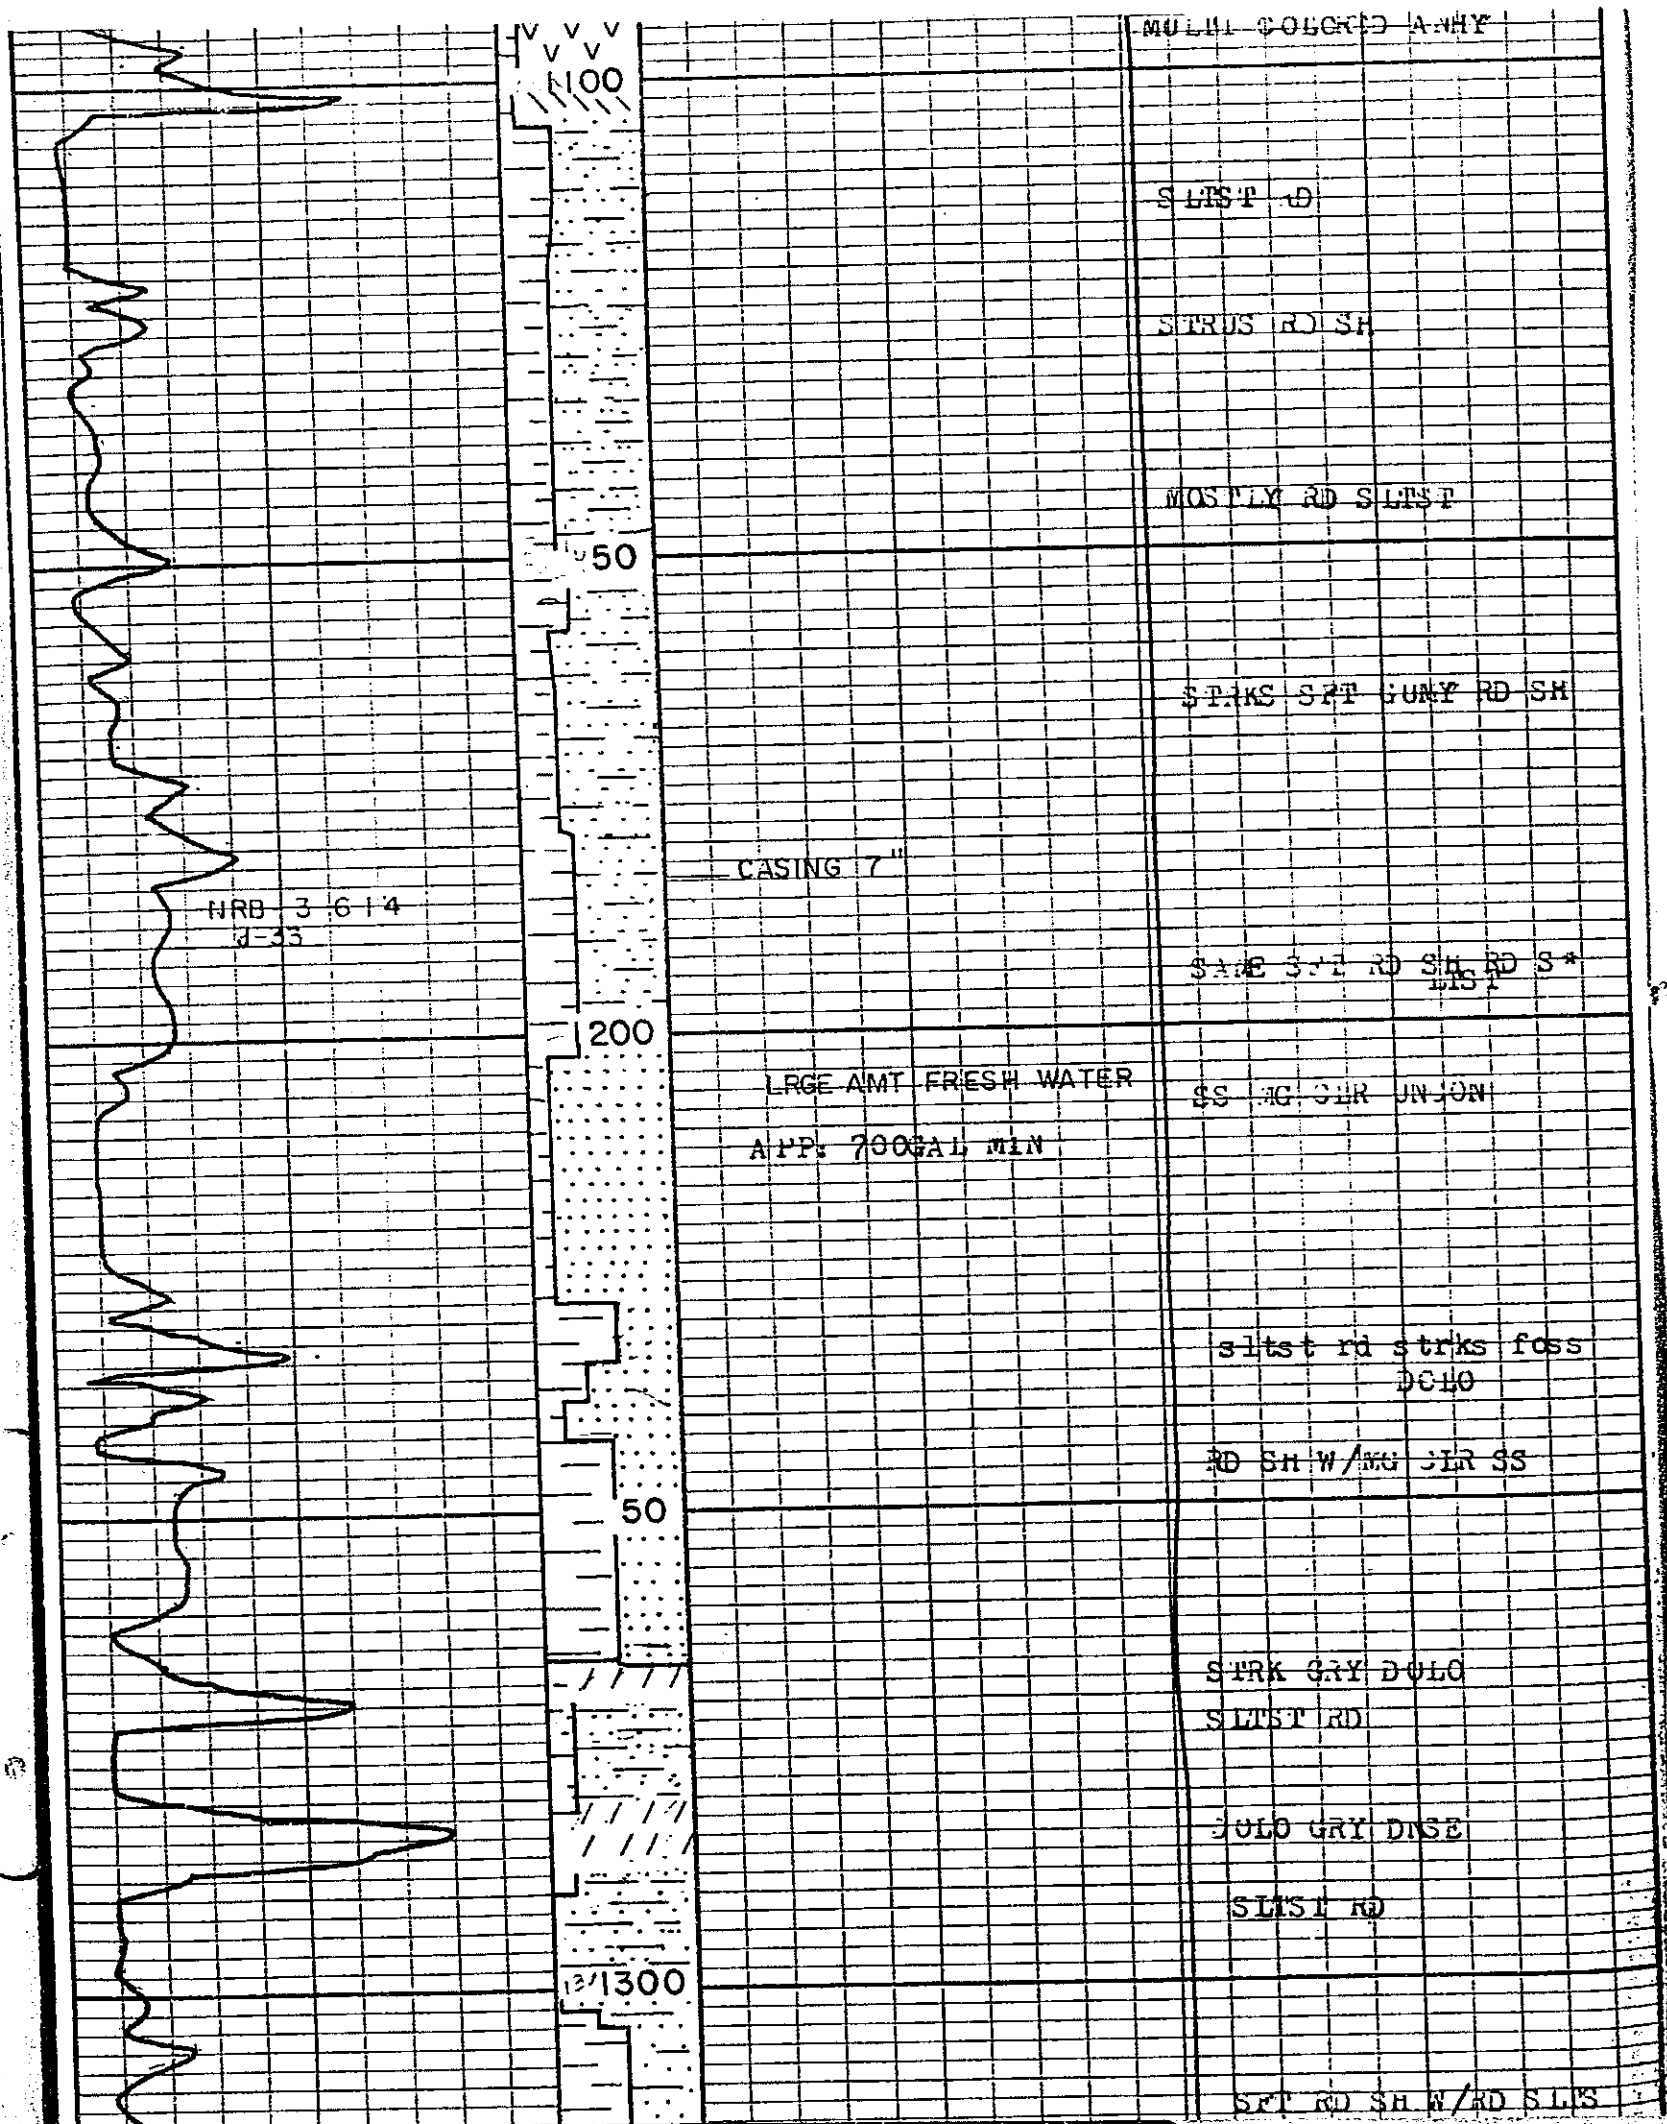 MULTI COLORED ANHY
1100
SLTST RD
STRUS RD SH
MOSTLY RD SLTST
50
STRKS SFT GUMY RD SH
CASING 7"
NRB 3 6 1 4
J-33
SAME SFT RD SH RD S*
LTST
200
LRGE AMT FRESH WATER
SS MG CLR UNCON
APP: 700GAL MIN
sltst rd strks foss
DOLO
RD SH W/MG CLR SS
50
STRK GRY DOLO
SLTST RD
DOLO GRY DNSE
SLTST RD
1300
SFT RD SH W/RD SLTS